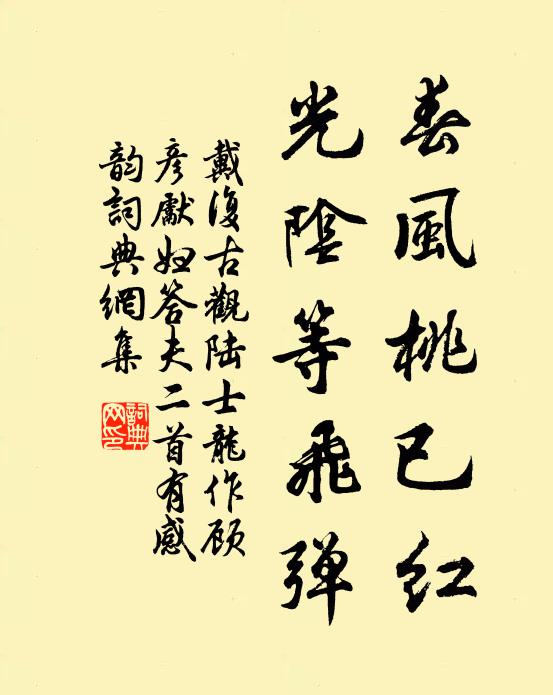 春風桃已紅
光陰等飛彈
戴復古觀陸士龍作顾
彦獻妞答夫二首有感
韵詞典網集
詞典
网印